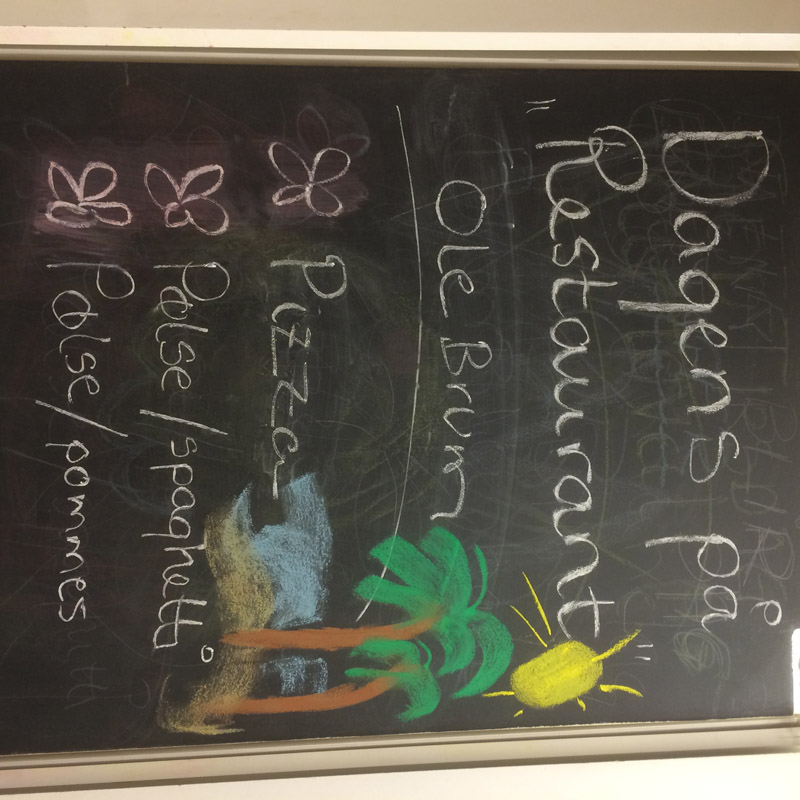 Dagens på
"Restaurant"
Ole Brum
Pizza
Pølse/spaghetti
Pølse/pommes